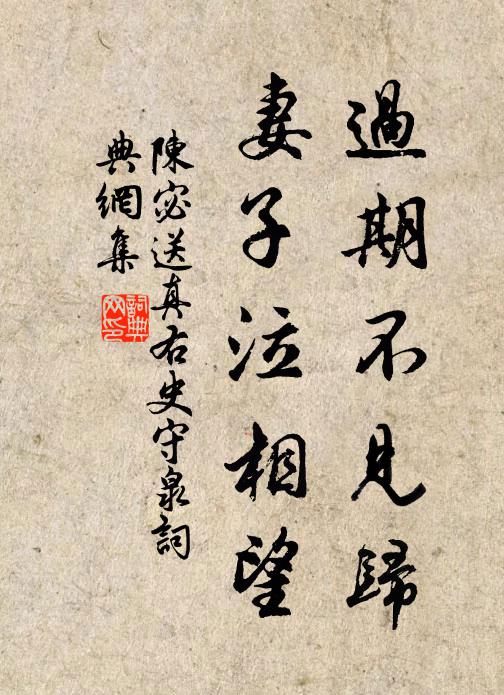 過期不見歸
妻子泣相望
陳宓送真右史守泉詞
典網集
詞典网印